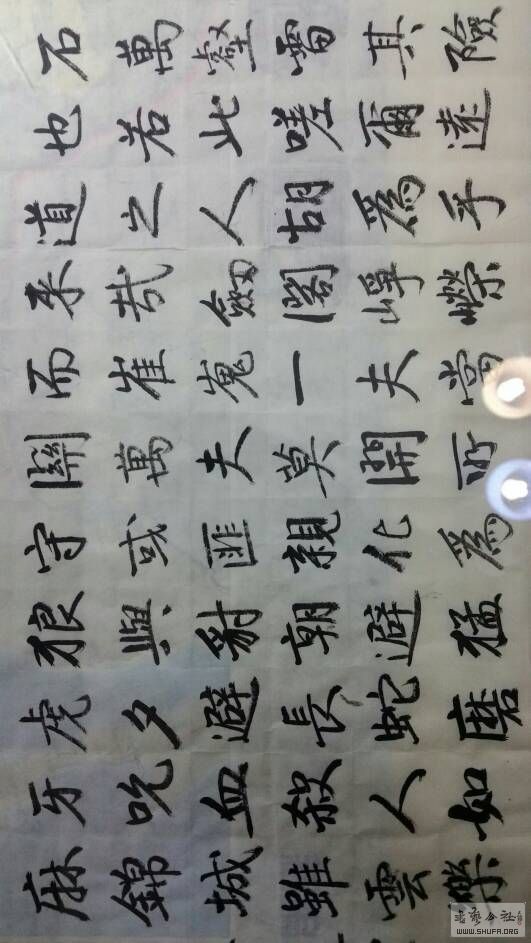 石萬壑雷其險
也若此嗟爾遠
道之人胡為乎
來哉劍閣崢嶸
而崔嵬一夫當
關萬夫莫開所
守或匪親化為
狼與豺朝避猛
虎夕避長蛇磨
牙吮血殺人如
麻錦城雖雲樂
書藝公社
WWW.SHUFA.ORG